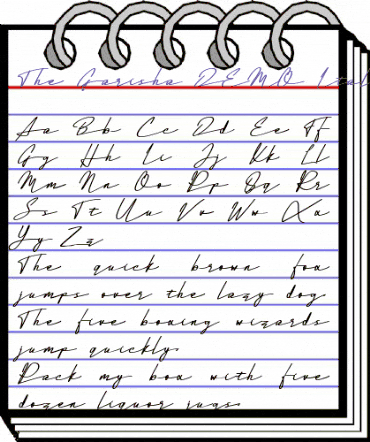 The Garisha DEMO Ital
Aa Bb Cc Dd Ee Ff
Gg Hh Ii Jj Kk Ll
Mm Nn Oo Pp Qq Rr
Ss Tt Uu Vv Ww Xx
Yy Zz
The quick brown fox
jumps over the lazy dog
The five boxing wizards
jump quickly.
Pack my box with five
dozen liquor jugs.